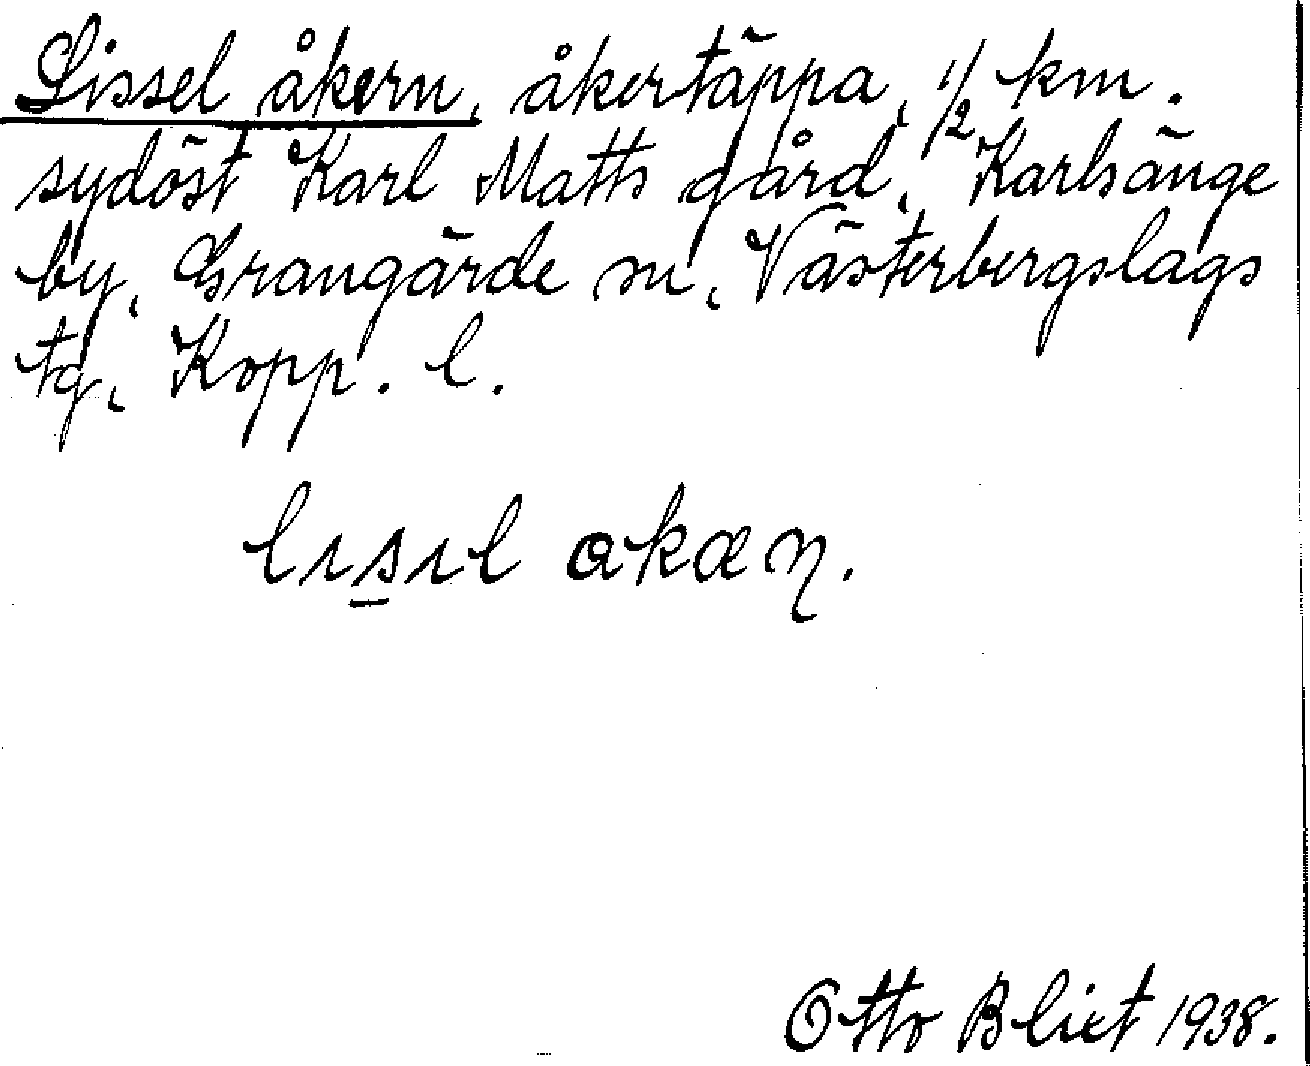 Lissel åkern, åkertäppa, 1/2 km.
sydöst Karl Matts gård, Karlsänge
by, Grangärde sn, Västerbergslags
tg, Kopp. l.
lısıl akæŋ.
Otto Blixt 1938.